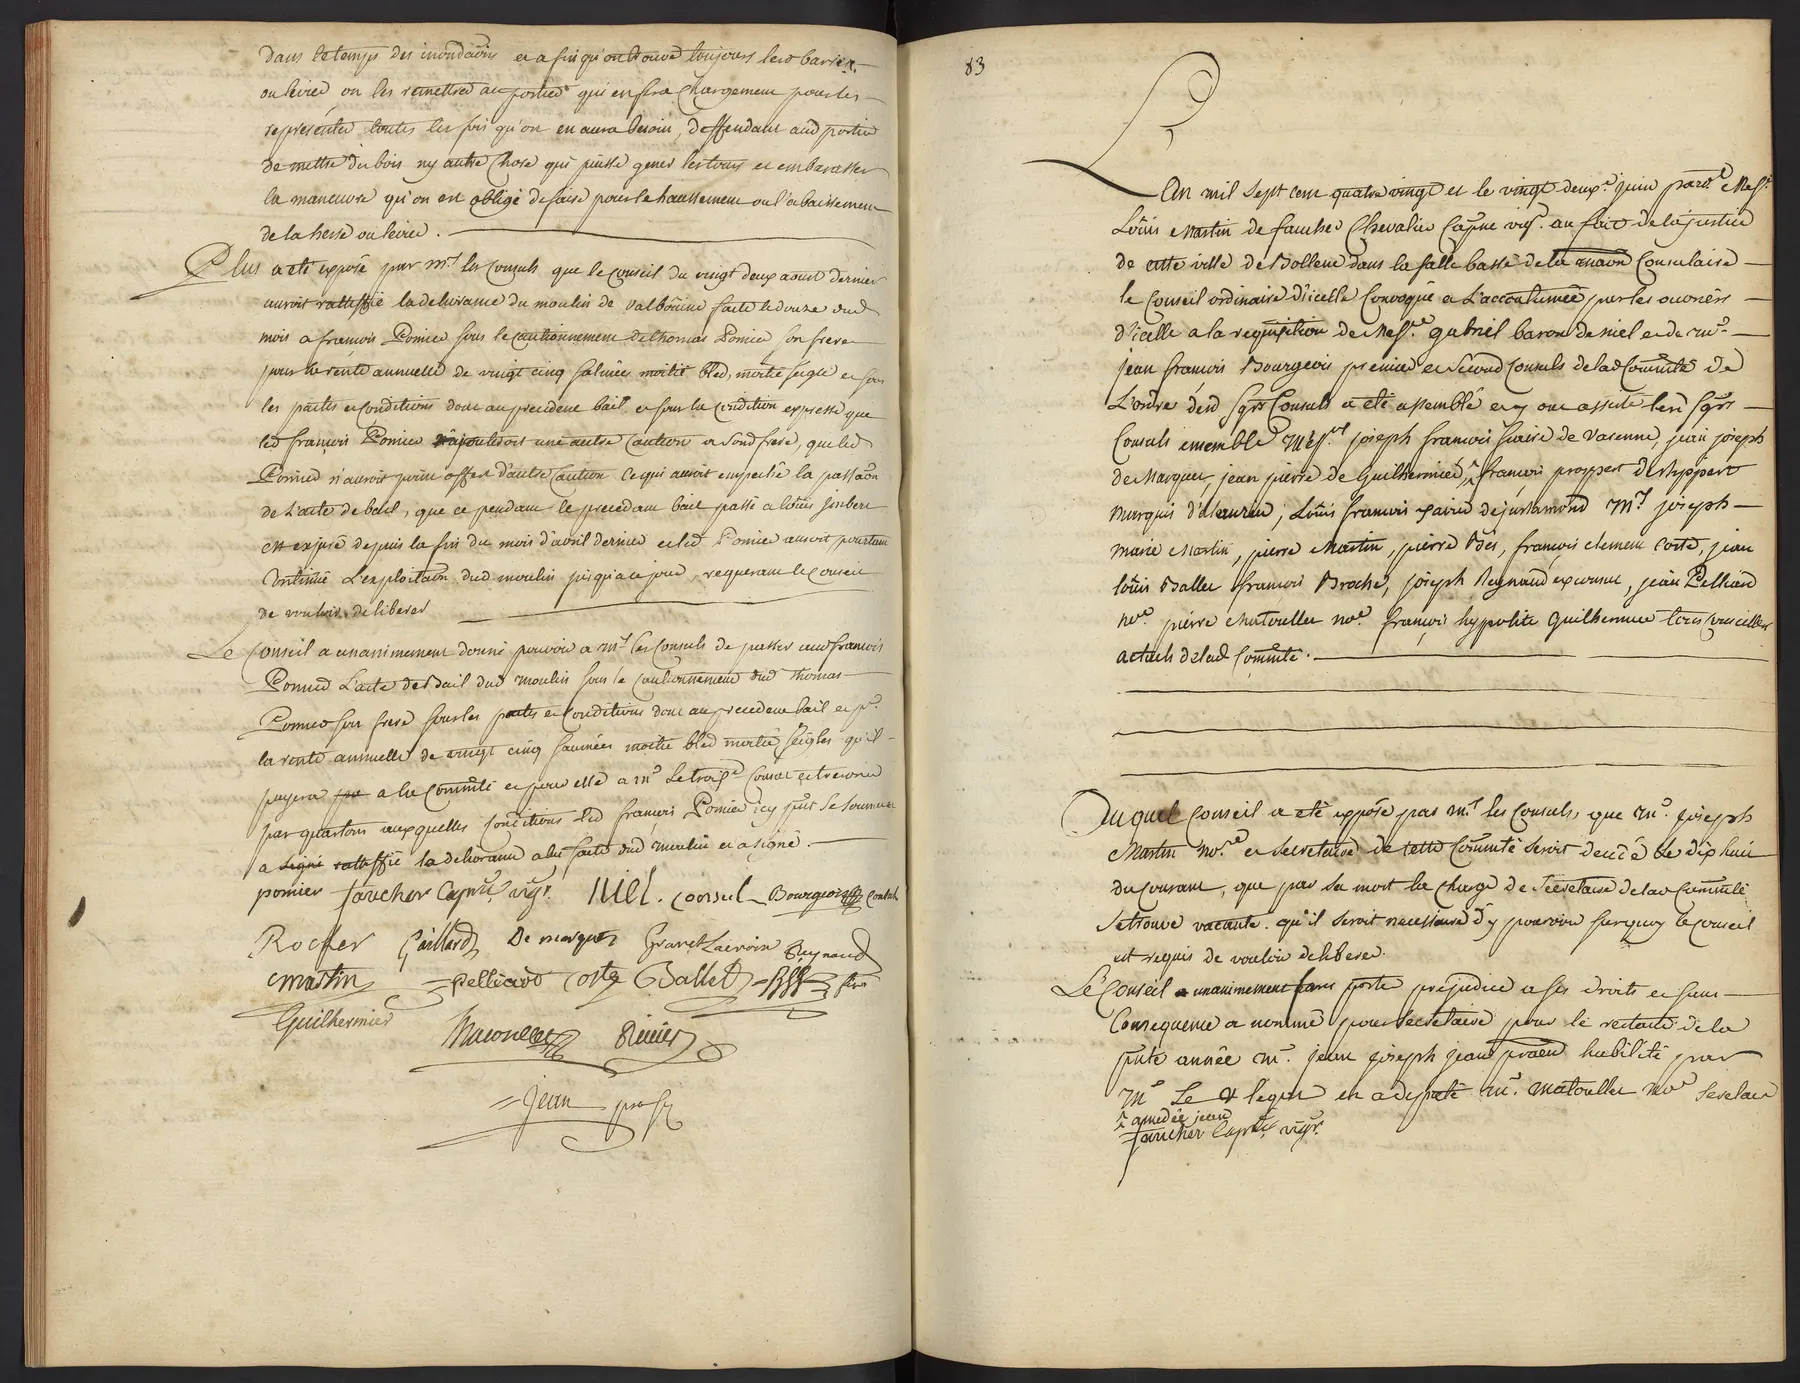 dans le temps des inondaôns et a fin qu'on trouve toujours les d barres
ou levier on les remettra au portier qui en fera chargement pour les
representer toutes les fois qu'on en aura besoin, deffendant aud portier
de mettre du bois ny autre chose qui puisse gener les tours et embarasser
la maneuvre qu'on est obligé de faire pour le haussement ou l'abaissement
de la herse ou levier.
Plus a eté exposé par mrs les Consuls que le Conseil du vingt deux aoust dernier
auroit rattiffié la delivrance du moulin de valbonne faite le douze dud
mois a françois Pomier sous le cautionnement de thomas Pomier son frere
pour la rente annuelle de vingt cinq salmées moitié bled, moitié seigle et sous
les pactes et conditions dont au precedent bail et sous la condition expresse que
led françois Pomier ajouteroit une autre caution a sond frere, que led
Pomier n'auroit point offert d'autre caution ce qui auroit empeché la passaôn
de l'acte de bail, que ce pendant le precedant bail passé a Loüis Joubert
est expiré depuis la fin du mois d'avril dernier et led Pomier auroit pourtant
continué l'exploitaôn dud moulin jusqu'a ce jour, requerant le Conseil
de vouloir deliberer
Le Conseil a unanimement donné pouvoir a mrs les Consuls de passer aud françois
Pomier l'acte de Bail dud moulin sous le cautionnement dud thomas
Pomier son frere sous les pactes et conditions dont au precedent bail et pr
la rente annuelle de vingt cinq saumées moitié bled moitié seigles qu'il
payera a la Commté et pour elle a mr Le trois.e Consul et tresorier
par quartons auxquelles conditions led françois Pomier icy pnt se soumet
a signé rattiffié la delivrance a lui faite dud moulin et a signé.
pomier faucher Capne vigr. Niel. consul Bourgeois Consul
Rocher Gaillard De marquet Gravet Lacroix Reynaud
martin pelliard Coste Ballet
Guilhermier Matoullet Rivier
= Jean
83
L'an mil sept cent quatre vingt et le vingt deuxe juin pardt Messe
Loüis Martin de faucher Chevalier Capne vigr. au fait de la justice
de cette ville de Bollene dans la salle basse de la maôn Consulaire
le Conseil ordinaire d'icelle Convoqué a l'accoutumée par les couriers
d'icelle a la requisition de Messe gabriel baron de niel et de mr
jean françois Bourgeois premier et second Consuls de lad Commté De
L'ordre desd sgrs Consuls a eté assemblé et y ont assisté lesd sgrs
Consuls ensemble Messrs joseph françois hiaire de Varenne, jean joseph
de Marquet, jean pierre de Guilhermier, françois prosper
Marquis d'alauzen, Loüis françois xavier de justamond Mrs joseph
marie Martin, pierre Martin, pierre Bès, françois clement coste, jean
loüis Ballet françois Broche, joseph Reynaud exconsul, jean Pelliard
nore pierre Matoullet nore françois hyppolite Guilhermier tous conseillers
actuels de lad Commté.
Auquel Conseil a eté exposé par mrs les Consuls, que mr joseph
Martin nore et secretaire de cette Commté seroit decedé le dix huit
du courant, que par sa mort la charge de secretaire de lad Commté
se trouve vacante. qu'il seroit necessaire d'y pourvoir surquoy le conseil
est requis de vouloir deliberer
Le Conseil a unanimement sans porter prejudice a ses droits et sans
Consequence a nommé pour secretaire pour le restant de la
pnte année mr. jean joseph jean habilité par
Mr Le V legat et a deputé mr. Matoullet nore secretaire
amedée jean
= faucher Capne vigr.